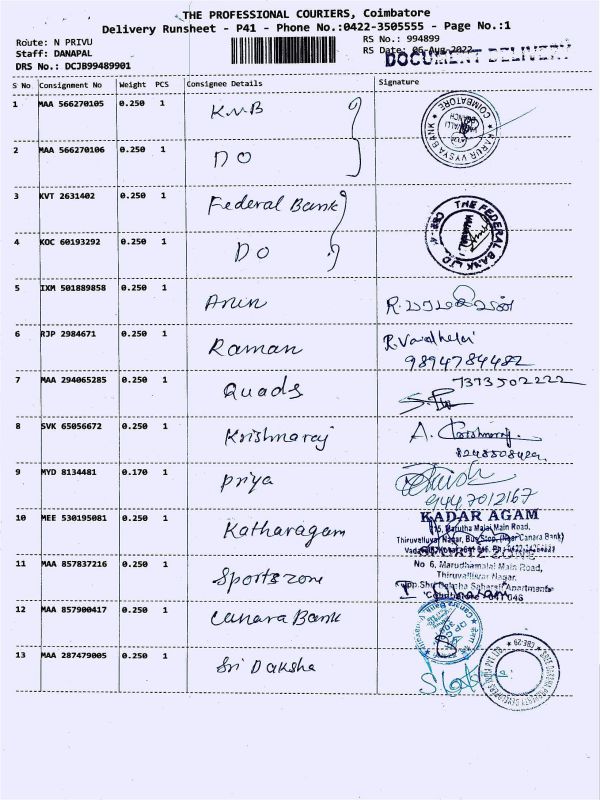 THE PROFESSIONAL COURIERS, Coimbatore
Delivery Runsheet - P41 - Phone No.:0422-3505555 - Page No.:1
Route: N PRIVU
RS No.: 994899
Staff: DANAPAL
RS Date: 06-Aug-2022
DOCUMENT DELIVERY
DRS No.: DCJB99489901
S No Consignment No Weight PCS Consignee Details Signature
1 MAA 566270105 0.250 1 K.V.B
COIMBATORE KARUR VYSYA BANK
2 MAA 566270106 0.250 1 DO
3 KVT 2631402 0.250 1 Federal Bank
THE FEDERAL BANK LTD
4 KOC 60193292 0.250 1 DO
5 IXM 501889858 0.250 1 Arun
6 RJP 2984671 0.250 1 Raman
9894784482
7 MAA 294065285 0.250 1 Quads 7373502222
8 SVK 65056672 0.250 1 Krishnaraj
9 MYD 8134481 0.170 1 Priya
9447012167
10 MEE 530195081 0.250 1 Katharagam KADAR AGAM
Marutha Malai Main Road,
Thiruvalluvar Nagar, Bus Stop, (Near Canara Bank)
11 MAA 857837216 0.250 1 Sports zone
No 6, Marudhamalai Main Road,
Thiruvalluvar Nagar,
Apartments
12 MAA 857900417 0.250 1 Canara Bank
13 MAA 287479005 0.250 1 Sri Daksha